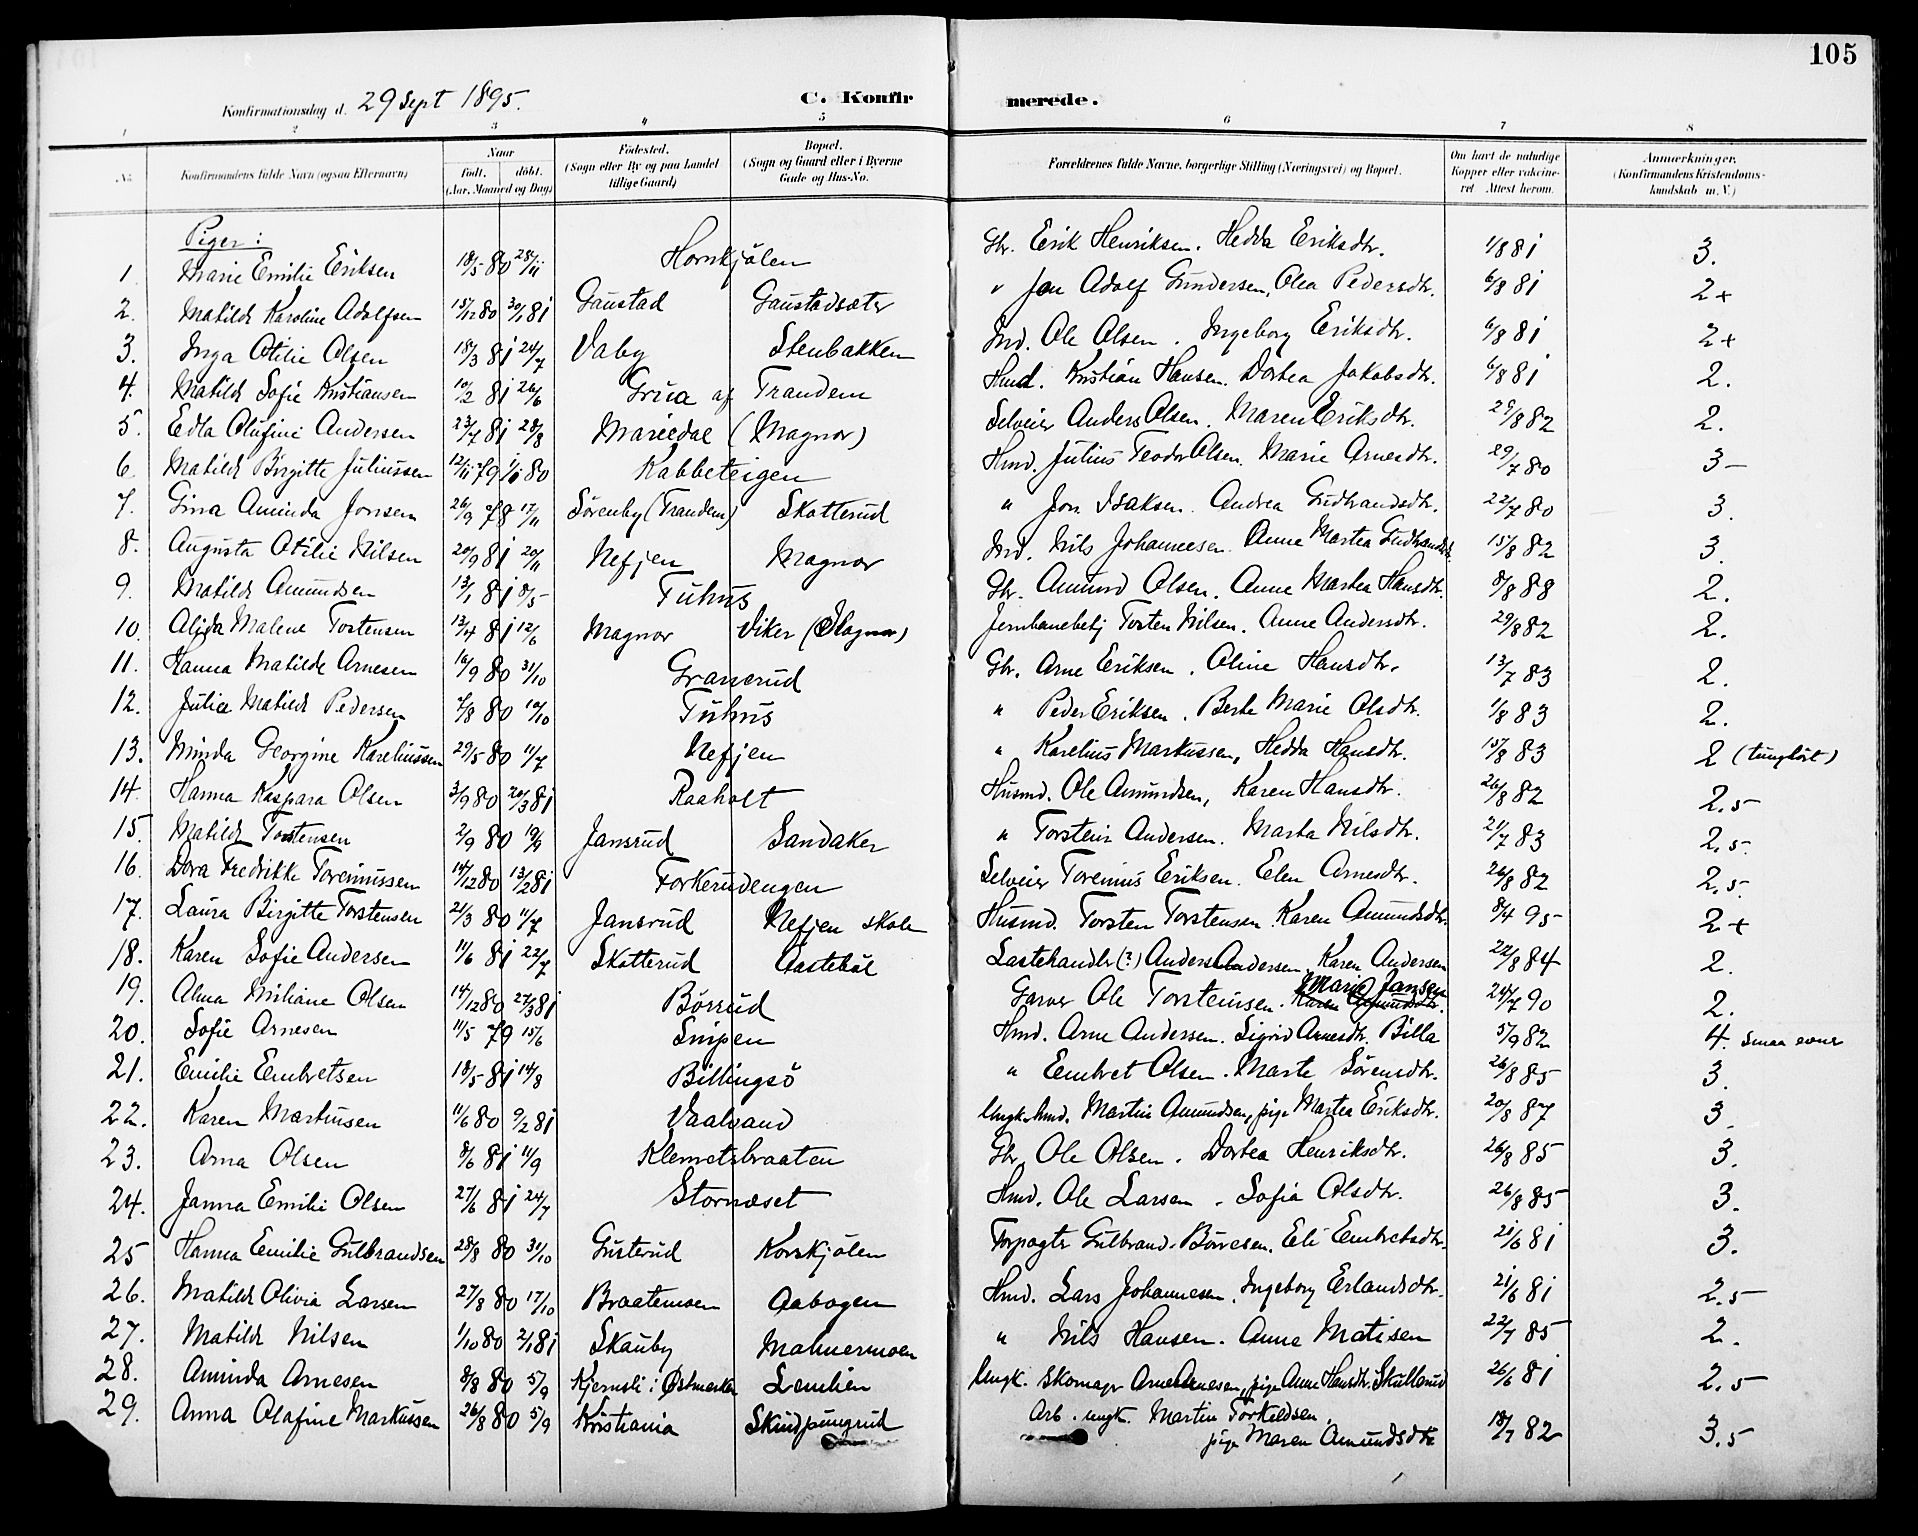 105
Konfirmationsdag d. 29 Sept 1895.
C. Konfirmerede.
1 2 3 4 5 6 7 8
No. Konfirmandens fulde Navn (ogsaa Efternavn) Naar födt. döbt. (Aar, Maaned og Dag) Födested. (Sogn eller By og paa Landet tillige Gaard) Bopæl. (Sogn og Gaard eller i Byerne Gade og Hus-No. Forældrenes fulde Navne, borgerlige Stilling (Næringsvei) og Bopæl. Om havt de naturlige Kopper eller vaccineret Attest herom. Anmærkninger. (Konfirmandens Kristendomskundskab m. V.)
Piger:
1. Marie Emilie Eriksen 18/5 80 28/11 Hornkjölen Gbr. Erik Henriksen. Hedda Eriksdtr. 1/8 81 3.
2. Matilde Karoline Adolfsen 15/12 80 30/1 81 Gaustad Gaustadsæter " Jon Adolf Gundersen, Olea Pedersdtr. 6/8 81 2+
3. Inga Otilie Olsen 18/3 81 24/7 Vaby Stenbakken Ind. Ole Olsen. Ingeborg Eriksdtr. 6/8 81 2+
4. Matilde Sofie Kristiansen 10/2 81 26/6 Grua af Trandem Hmd. Kristian Hansen. Dortea Jakobsdtr. 6/8 81 2.
5. Edla Olufine Andersen 23/7 81 28/8 Mariedal (Magnor) Selveier Anders Olsen. Maren Eriksdtr. 29/8 82 2.
6. Matilde Birgitte Juliussen 12/11 79 1/1 80 Kabbeteigen Hmd. Julius Teodor Olsen. Marie Arnesdtr. 29/7 80 3-
7. Gina Aminda Jonsen 26/9 78 17/11 Sörenby (Trandem) Skotterud " Jon Isaksen. Andrea Gudbrandsdtr. 22/7 80 3.
8. Augusta Otilie Nilsen 20/9 81 20/11 Nefjen Magnor Ind. Nils Johannesen. Anne Martea Gudbrandsd. 15/8 82 3.
9. Matilde Amundsen 13/1 81 8/5 Tuhus Gbr. Amund Olsen. Anne Martea Hansdtr. 8/8 88 2.
10. Alida Malene Tostensen 13/4 81 12/6 Magnor Viker (Magnor) Jernbanebetj Tosten Nilsen. Anne Andersdtr. 29/8 82 2.
11. Hanna Matilde Arnesen 16/9 80 31/10 Granerud Gbr. Arne Eriksen. Oline Hansdtr. 13/7 83 2.
12. Julie Matilde Pedersen 7/8 80 10/10 Tuhus " Peder Eriksen. Berte Marie Olsdtr. 1/8 83 2.
13. Minda Georgine Kareliussen 29/5 80 11/7 Nefjen " Karelius Markussen, Hedda Hansdtr. 15/8 83 2 (tunghört)
14. Hanna Kaspara Olsen 3/9 80 20/3 81 Raaholt Husmd. Ole Amundsen, Karen Hansdtr. 26/8 82 2.5
15. Matilde Torstensen 2/9 80 19/9 Jansrud Sandaker " Torstein Andersen. Marta Nilsdtr. 21/7 83 2.5.
16. Dora Fredrikke Toreniussen 14/12 80 13/2 81 Forkerudengen Selveier Torenius Eriksen. Elen Arnesdtr. 26/8 82 2.5.
17. Laura Birgitte Torstensen 21/3 80 11/7 Jansrud Nefjen skole Husmd. Torsten Torstensen. Karen Amundsdtr. 8/4 95 2+
18. Karen Sofie Andersen 11/6 81 22/7 Skotterud Aasteböl Lastehandler (?) Anders Andersen, Karen Andersen 22/8 84 2.
19. Alma Miliane Olsen 14/12 80 27/3 81 Börrud Garver Ole Torsteinsen. Karen Amundsdtr. Marie Jansen 24/7 90 2.
20. Sofie Arnesen 11/5 79 15/6 Snipen Hmd. Arne Andersen. Sigrid Arnesdtr. Billa 5/9 82 4. smaa evner
21. Emilie Embretsen 18/5 81 14/8 Billingsö " Embret Olsen. Marte Sörensdtr. 26/8 85 3.
22. Karen Martinsen 11/6 80 9/2 81 Vaalvand Ungk. hmd. Martin Amundsen, pige Martea Eriksdtr. 20/8 87 3.
23. Arna Olsen 8/6 81 11/9 Klemetsbraaten Gbr. Ole Olsen. Dortea Henriksdtr. 26/8 85 3.
24. Janna Emilie Olsen 27/6 81 24/7 Stornæset Hmd. Ole Larsen. Sofia Olsdtr. 26/8 85 3.
25 Hanna Emilie Gulbrandsen 28/8 80 31/10 Gusterud Korskjölen Forpagter Gulbrand Börresen. Eli Embretsdtr. 21/6 81 3.
26. Matilde Olivia Larsen 27/8 80 17/10 Braatemoen Aabogen Hmd. Lars Johannesen. Ingeborg Erlandsdtr. 21/6 81 2.5
27. Matilde Nilsen 1/10 80 2/1 81 Skauby Malmermoen " Nils Hansen. Anne Matisen 22/7 85 2.
28. Aminda Arnesen 8/8 80 5/9 Kjernsli i Östmarka Lemilien Ungk. Skomager Arne Arnesen, pige Anne Hansdtr. Skullerud 26/6 81 2.5
29. Anna Olafine Markussen 26/8 80 5/9 Kristiania Skindpungrud Arb. ungk. Martin Torkeldsen,
pige Maren Amundsdtr 18/7 82 3.5